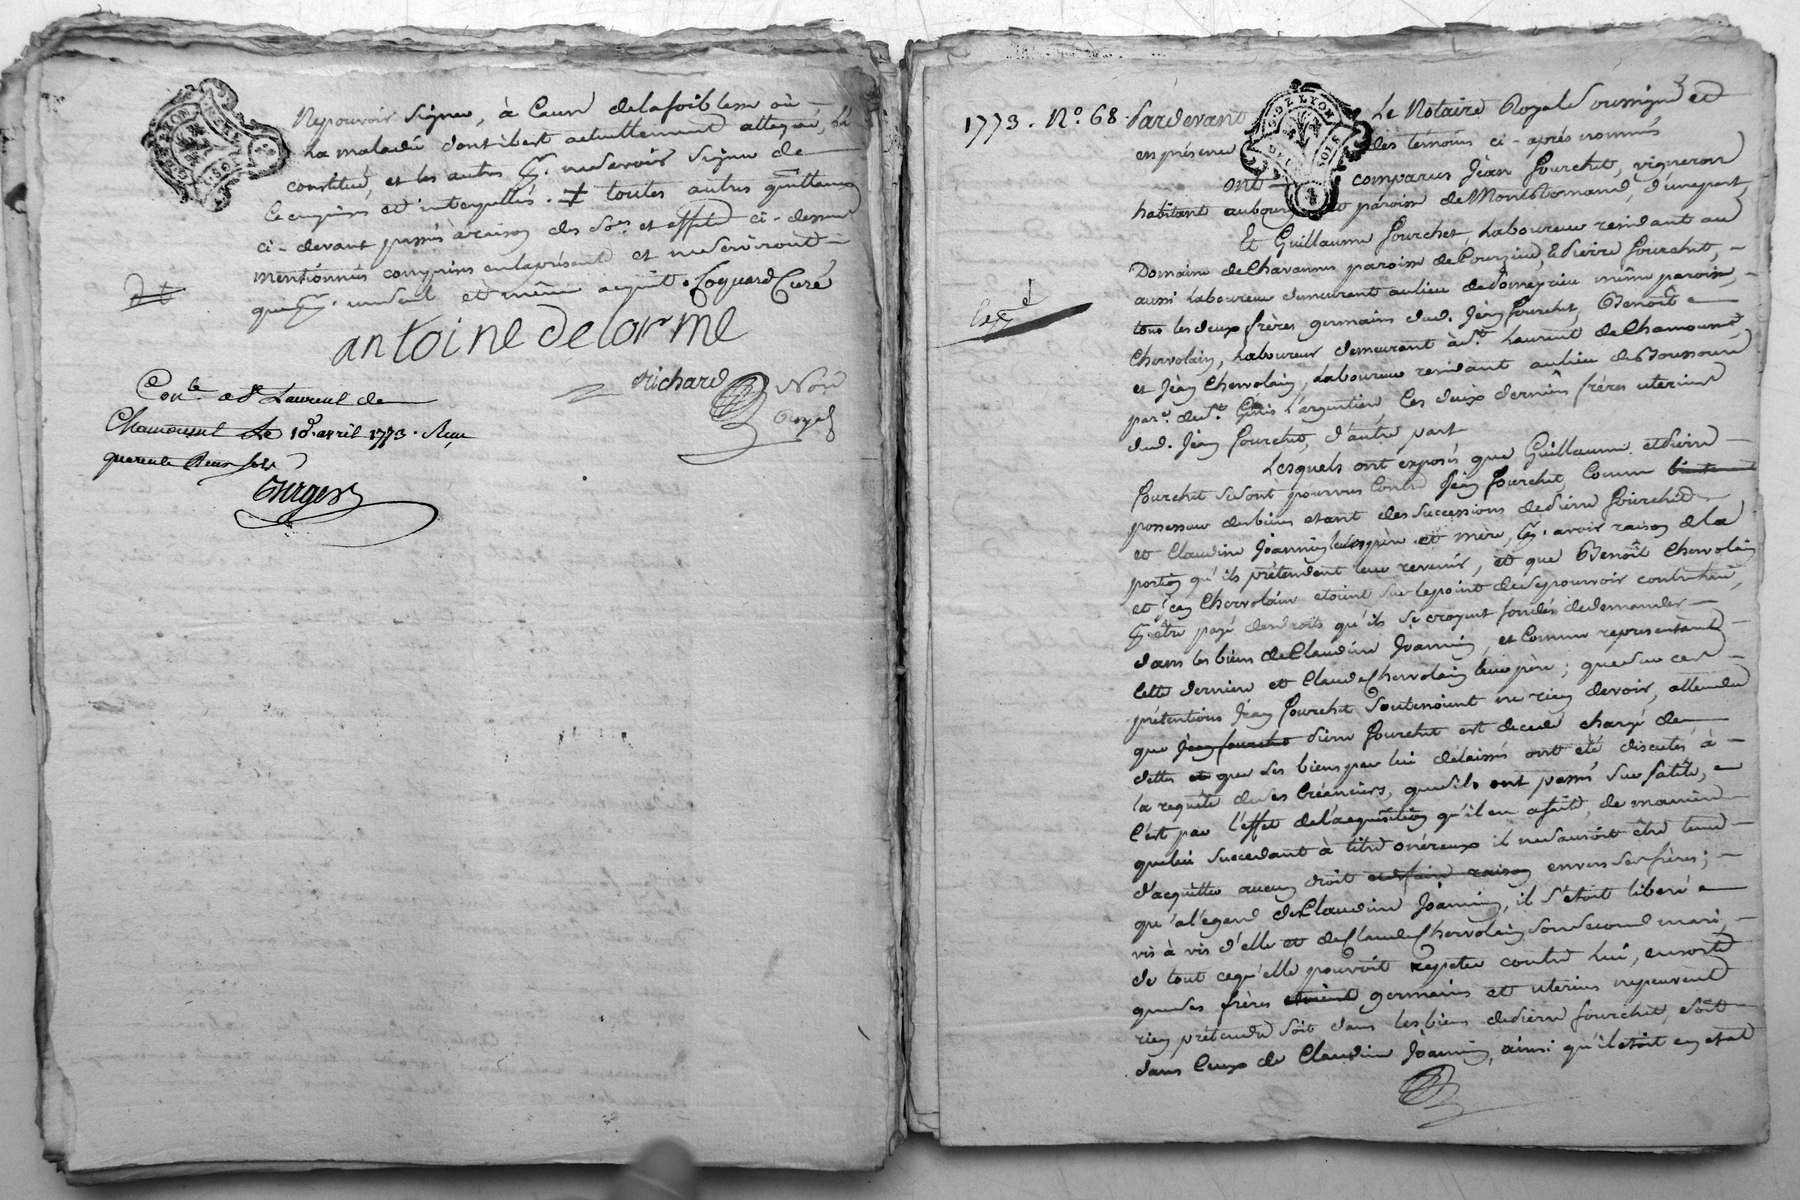 Ne pouvoir signer, à cause de la foiblesse où
la maladie dont il est actuellement attaqué, l'a
constitué, et les autres pr. ne savoir signer de
ce enquis et interpellés. ≠ toutes autres quittances
ci-devant passés à raison des Srs. et effets ci-dessus
mentionnés comprises en la présente et ne serviront
que pr. un seul et même acquit. Coquard Curé
antoine delorme
Richard Nore
Royal
Con.le a St Laurent de
Chamousset Le 10 avril 1773. Reçu
quarante deux sols
1773. No. 68. Pardevant Le Notaire Royal Soussigné et
GDE LYON
DEUX SOLS
en présence des témoins ci-après nommés
ont comparus Jean Fourchet, vigneron
habitant au bourg et paroisse de Montromand, d'une part,
Et Guillaume Fourchet, Laboureur residant au
Domaine de Chavannes paroisse de Courzieu, & Pierre Fourchet,
aussi Laboureur demeurant au lieu de même paroisse,
tous les deux frères germains dud. Jean Fourchet, Benoît
Chervolain, Laboureur demeurant à St. Laurent de Chamousset
et Jean Chervolain, Laboureur residant au lieu de
par. de St. Genis l'argentiere, Ces deux derniers frères uterins
dud. Jean Fourchet, d'autre part
Lesquels ont exposés que Guillaume et Pierre
Fourchet se sont pourvus Contre Jean Fourchet, Comme
possesseur des biens etant des successions de Pierre Fourchet
et Claudine Joannin leurs père et mère, pr. avoir raison de la
portion qu'ils prétendent leur revenir, et que Benoît Chervolain
et Jean Chervolain etoient sur le point de se pourvoir contre lui,
pr. être payé des droits qu'ils se croyent fondés de demander
dans les biens de Claudine Joannin, et Comme representants
cette derniere et Claude Chervolain leur père; que sur ces
prétentions Jean Fourchet soutenoient ne rien devoir, attendu
que Jean fourchet Pierre Fourchet est decedé chargé de
dettes et que les biens par lui délaissés ont été discutés à
la requête de ses Créanciers, qu'ils ont passé sur sa tête,
c'est par l'effet de l'acquisition qu'il en a fait, de maniere
que lui succedant à titre onéreux il ne sauroit être tenu
d'acquitter aucun droit et faire raison envers ses frères;
qu'a l'égard de Claudine Joannin, il s'étoit liberé
vis à vis d'elle et de Claude Chervolain son second mari,
de tout ce qu'elle pouvoit repeter contre Lui, en sorte
que ses frères germains et uterins ne peuvent
rien prétendre soit dans les biens de Pierre Fourchet, soit
dans Ceux de Claudine Joannin, ainsi qu'il etoit en etat